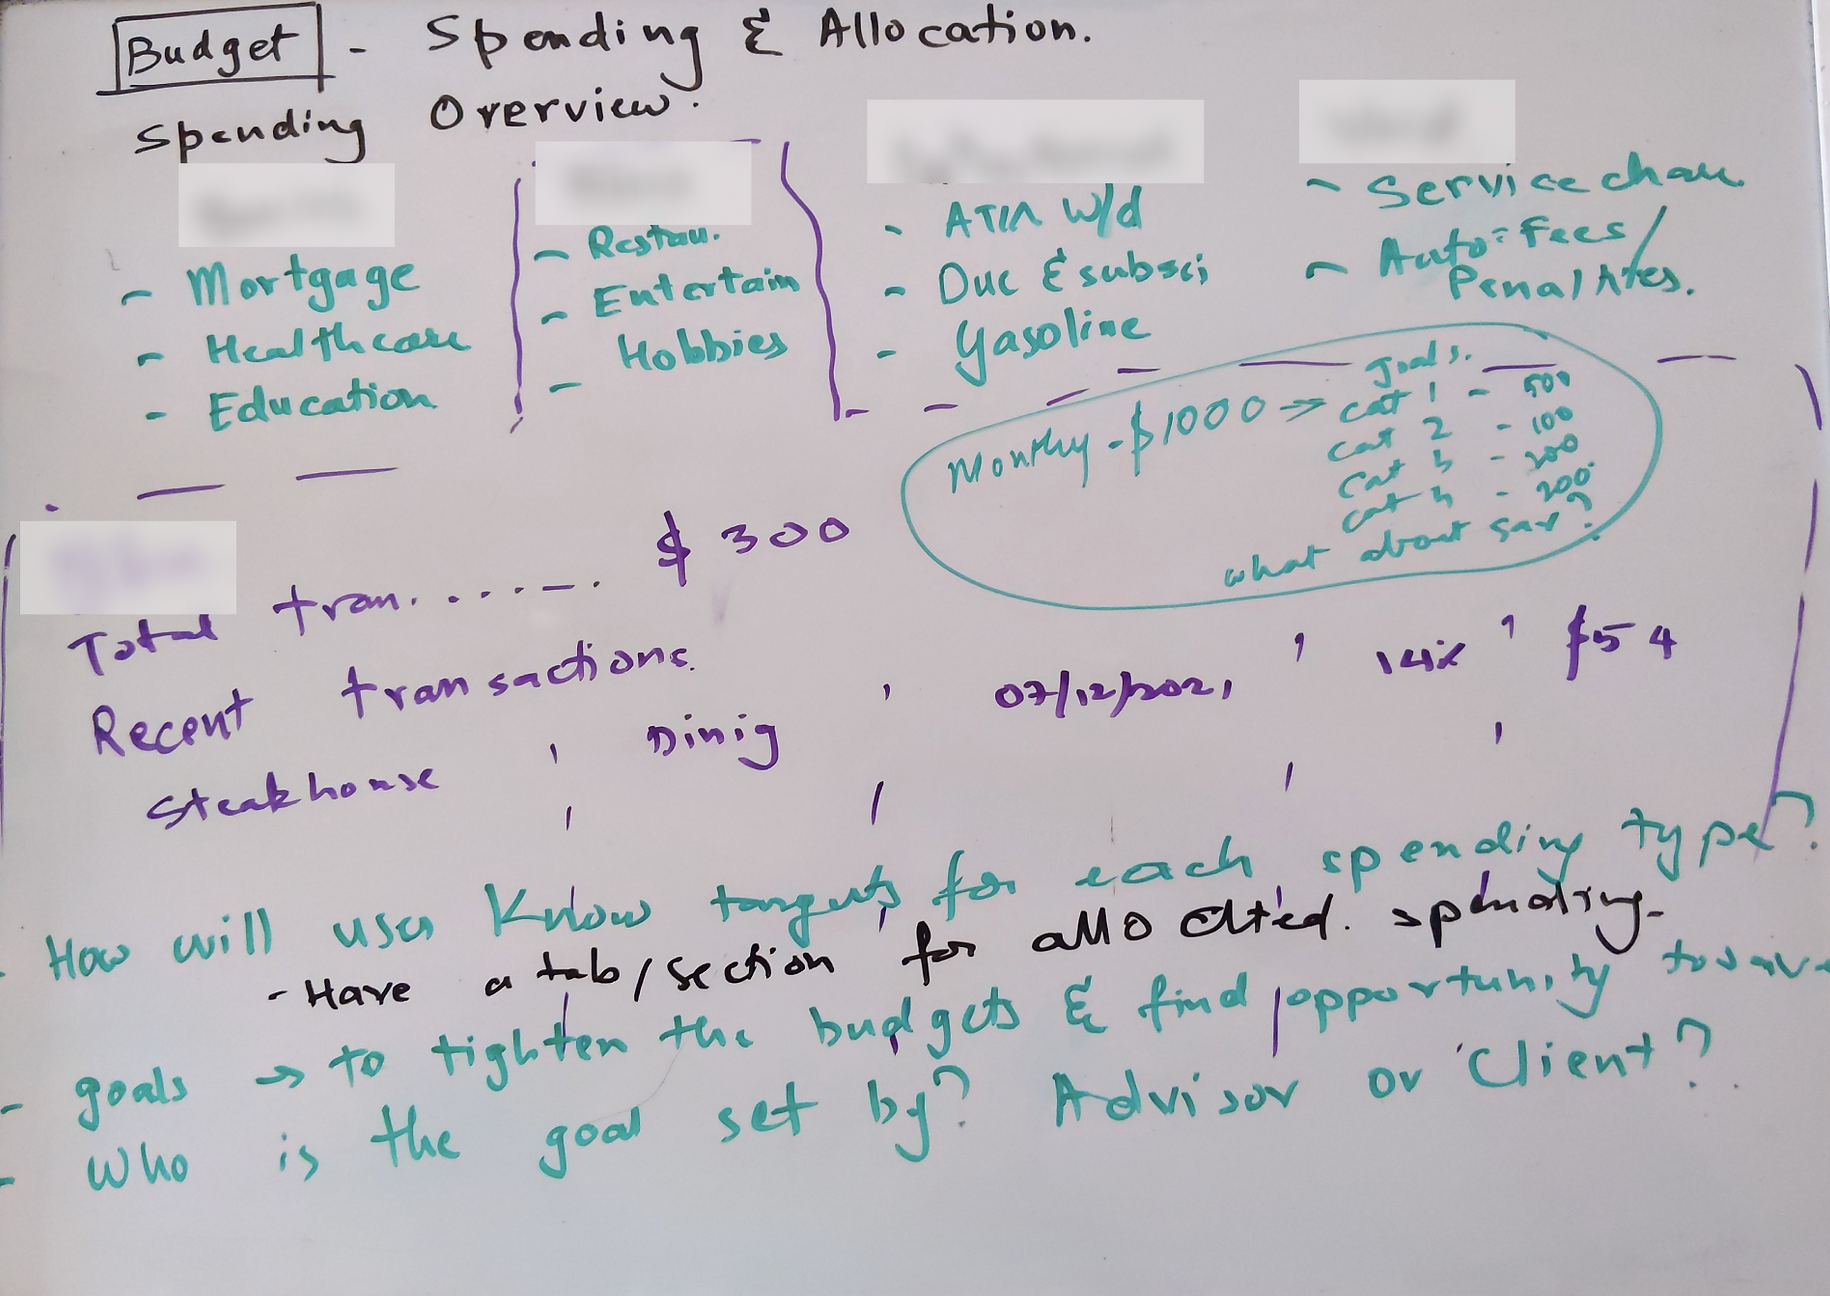 Budget - Spending & Allocation.
Spending Overview.
- Mortgage
- Healthcare
- Education
- Restau.
- Entertain
- Hobbies
- ATM W/d
- Due & subsci
- Gasoline
- Service char.
- Auto = Fees/
Penalties.
Monthly - $1000 → goals.
cat 1 - 500
cat 2 - 100
cat 3 - 200
cat - 200
what about sav?
$300
Total tran.
Recent transactions.
Steakhouse , Dinig , 07/12/2021, , , $54
- How will user know targets for each spending type?
- Have a tab/section for allocated. spending.
- goals → to tighten the budgets & find opportunity to save
- Who is the goal set by? Advisor or Client?